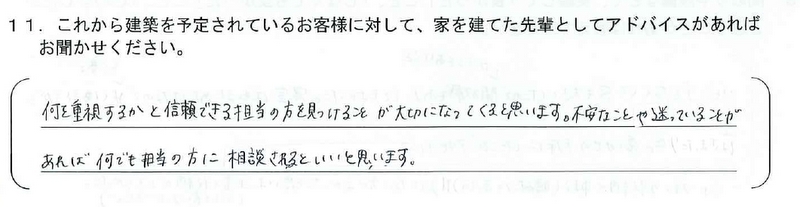 １１．これから建築を予定されているお客様に対して、家を建てた先輩としてアドバイスがあれば
お聞かせください。
何を重視するかと信頼できる担当の方を見つけることが大切になってくると思います。不安なことや迷っていることが
あれば何でも担当の方に相談されるといいと思います。